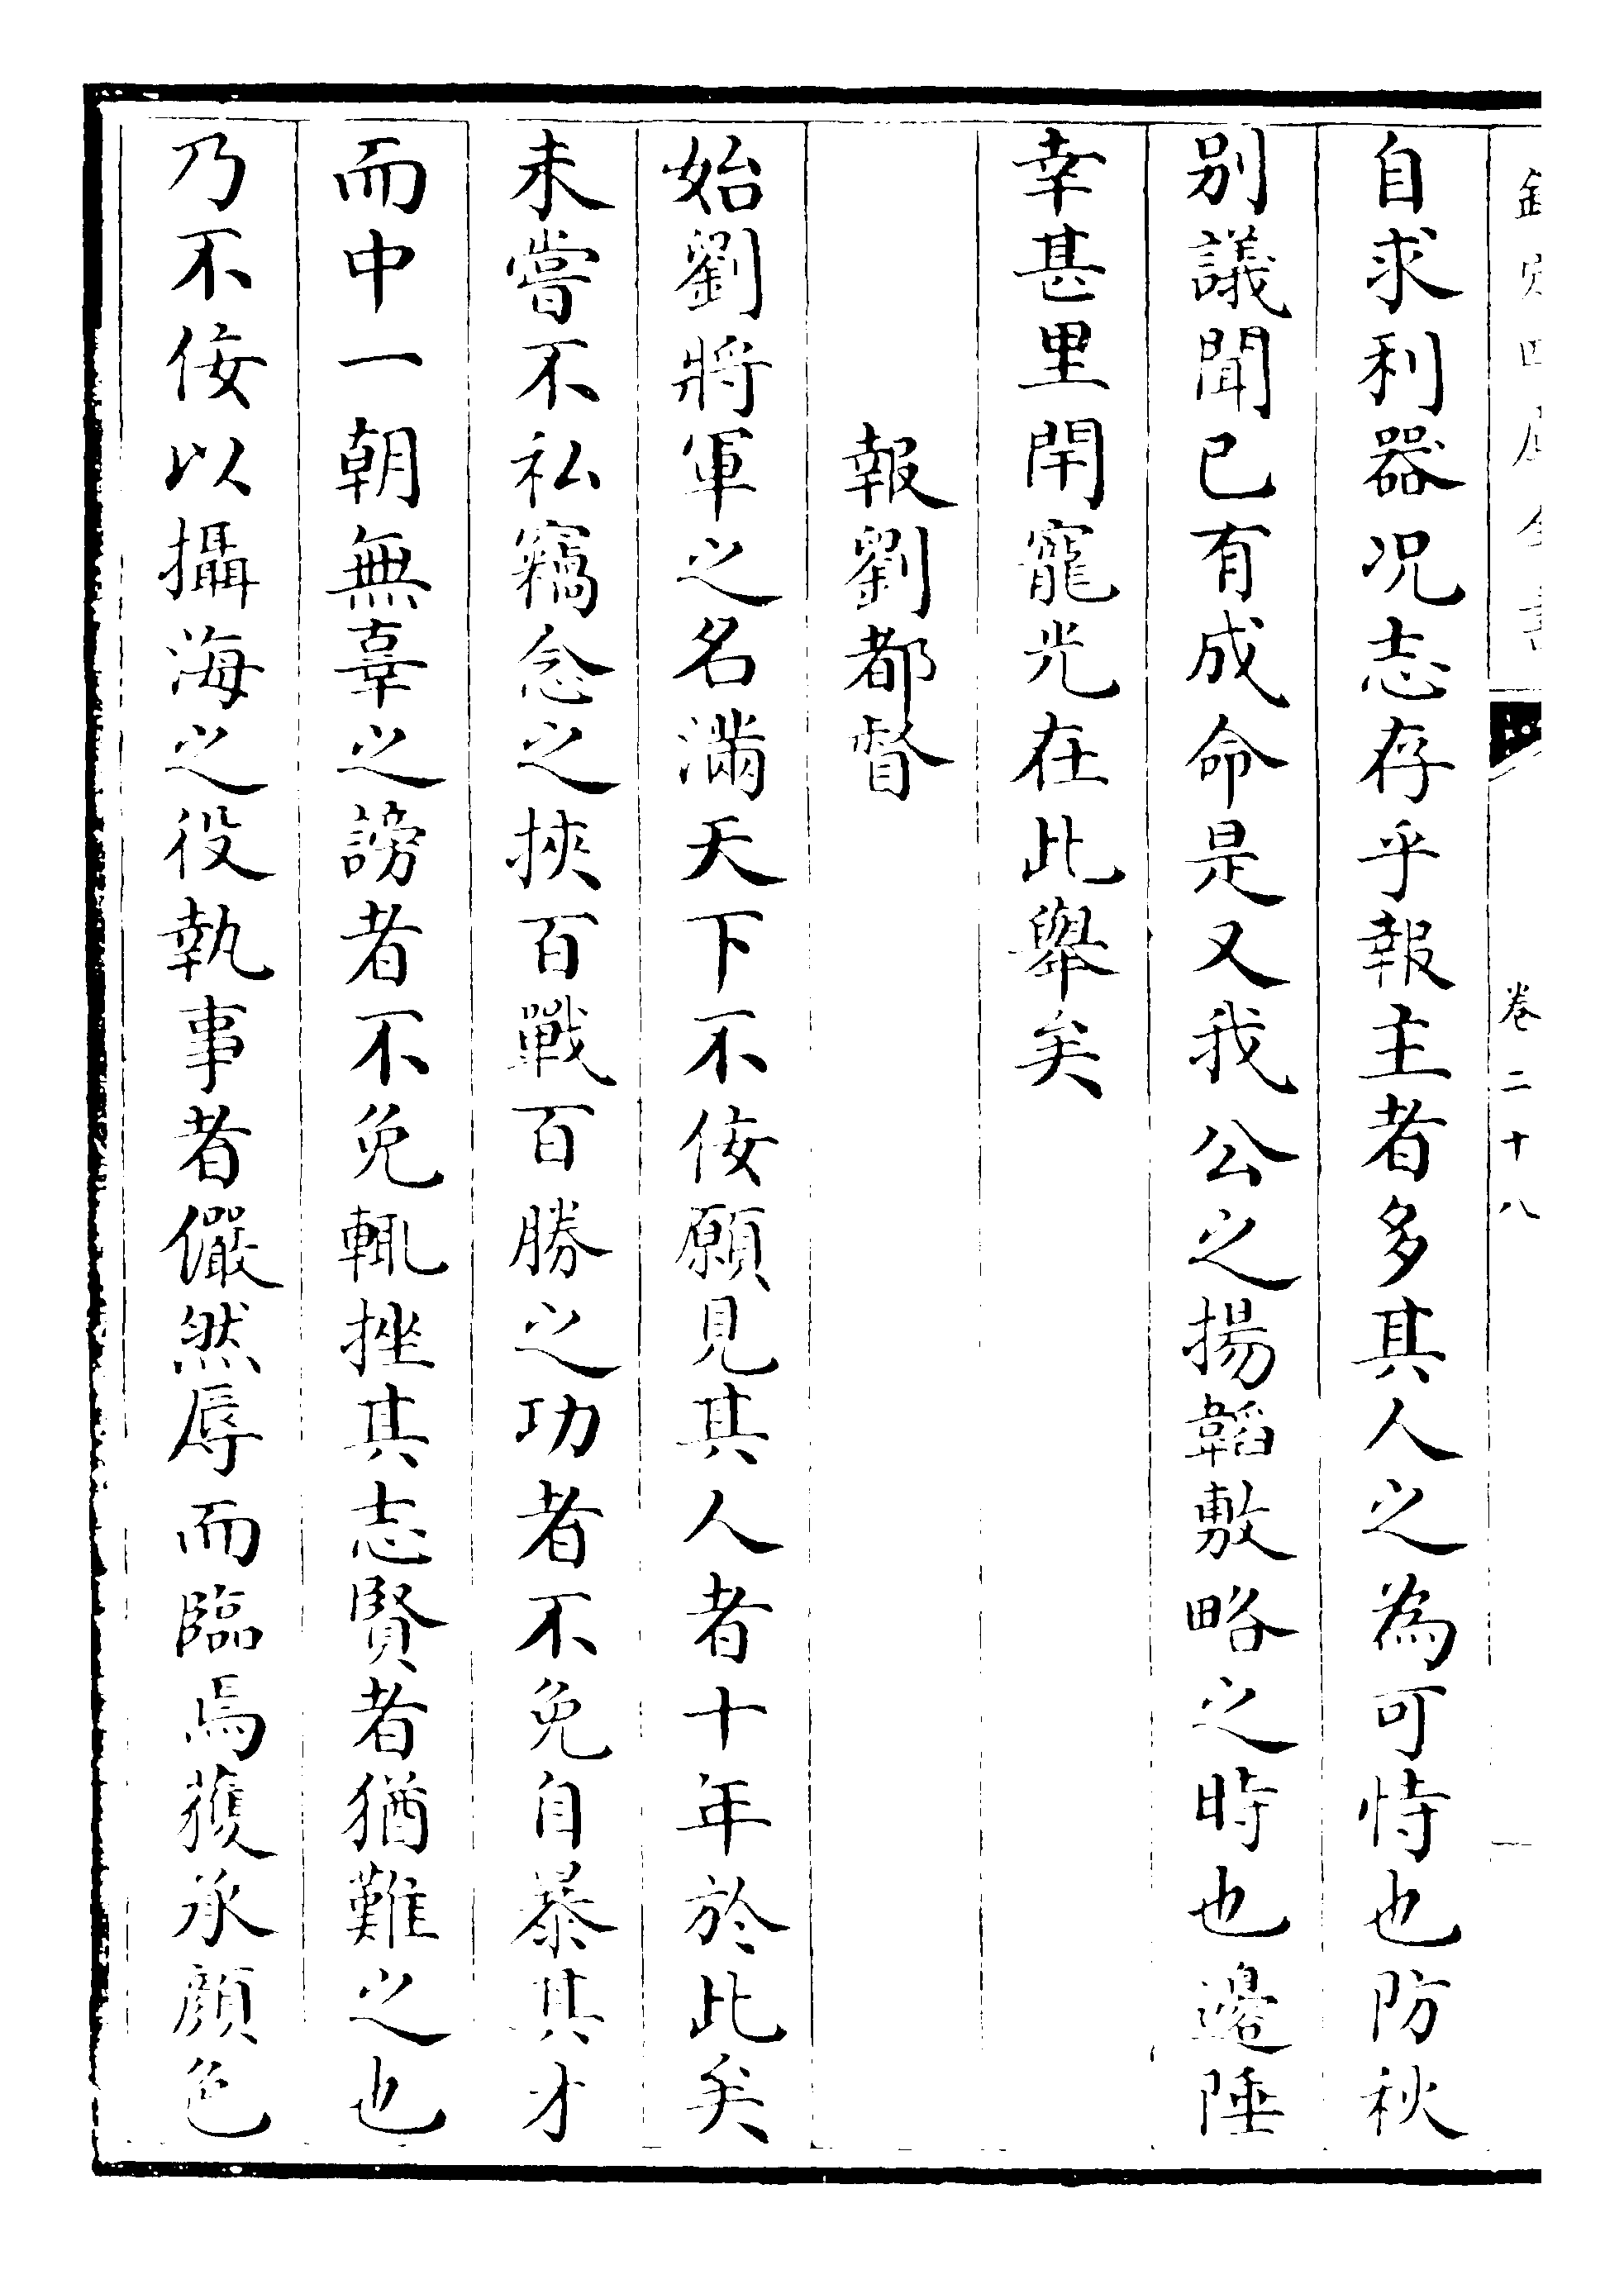 欽定四庫全書 卷二十八
自求利器况志存乎報主者多其人之為可恃也防秋
别議聞已有成命是又我公之揚韜敷略之時也邊陲
幸甚里閈寵光在此舉矣
報劉都督
始劉將軍之名滿天下不佞願見其人者十年於此矣
未嘗不私竊念之挾百戰百勝之功者不免自暴其才
而中一朝無辜之謗者不免輒挫其志賢者猶難之也
乃不佞以攝海之役執事者儼然辱而臨焉獲承顔色